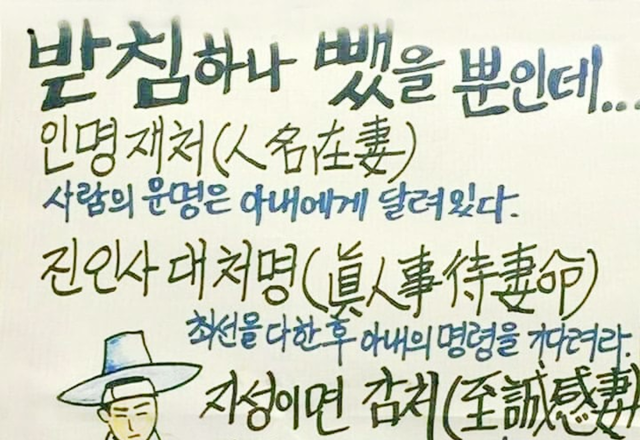 받침하나 뺐을 뿐인데...
인명재처(人名在妻)
사람의 운명은 아내에게 달려있다.
진인사대처명(眞人事待妻命)
최선을 다한 후 아내의 명령을 기다려라.
지성이면 감처(至誠感妻)